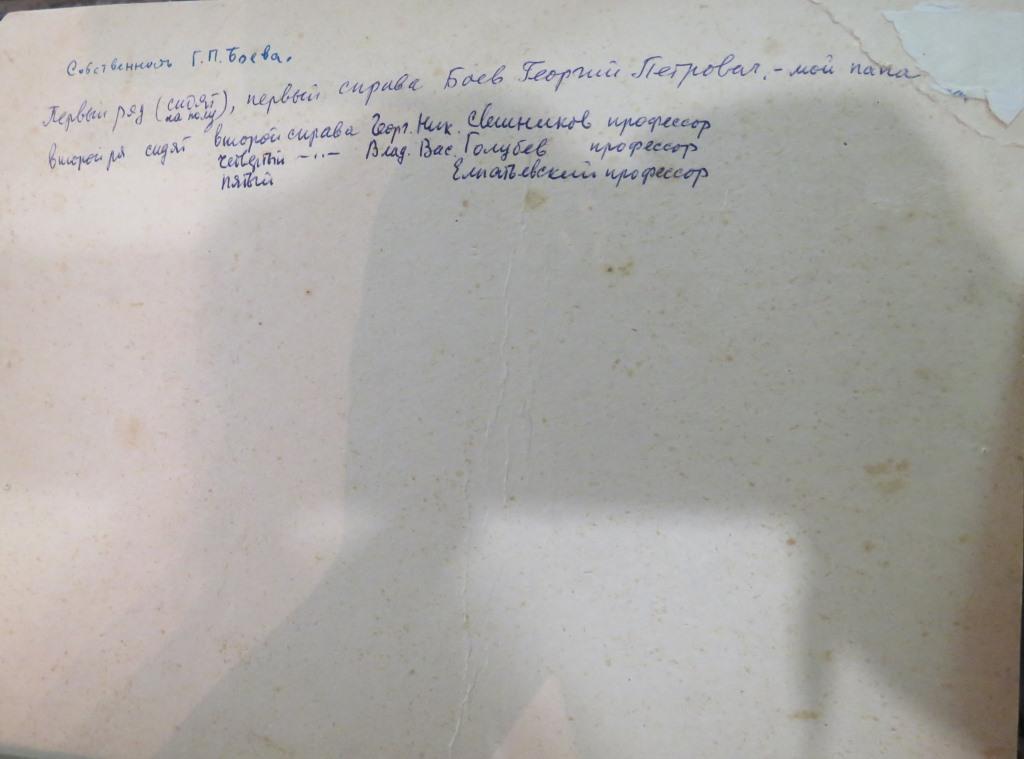 Собственность Г.П.Боева.
Первый ряд (сидят на полу), первый справа Боев Георгий Петрович, - мой папа
второй ря сидят второй справа Георг. Ник. Свешников профессор
четвертый -"- Влад. Вас. Голубев профессор
пятый Елпатьевский профессор